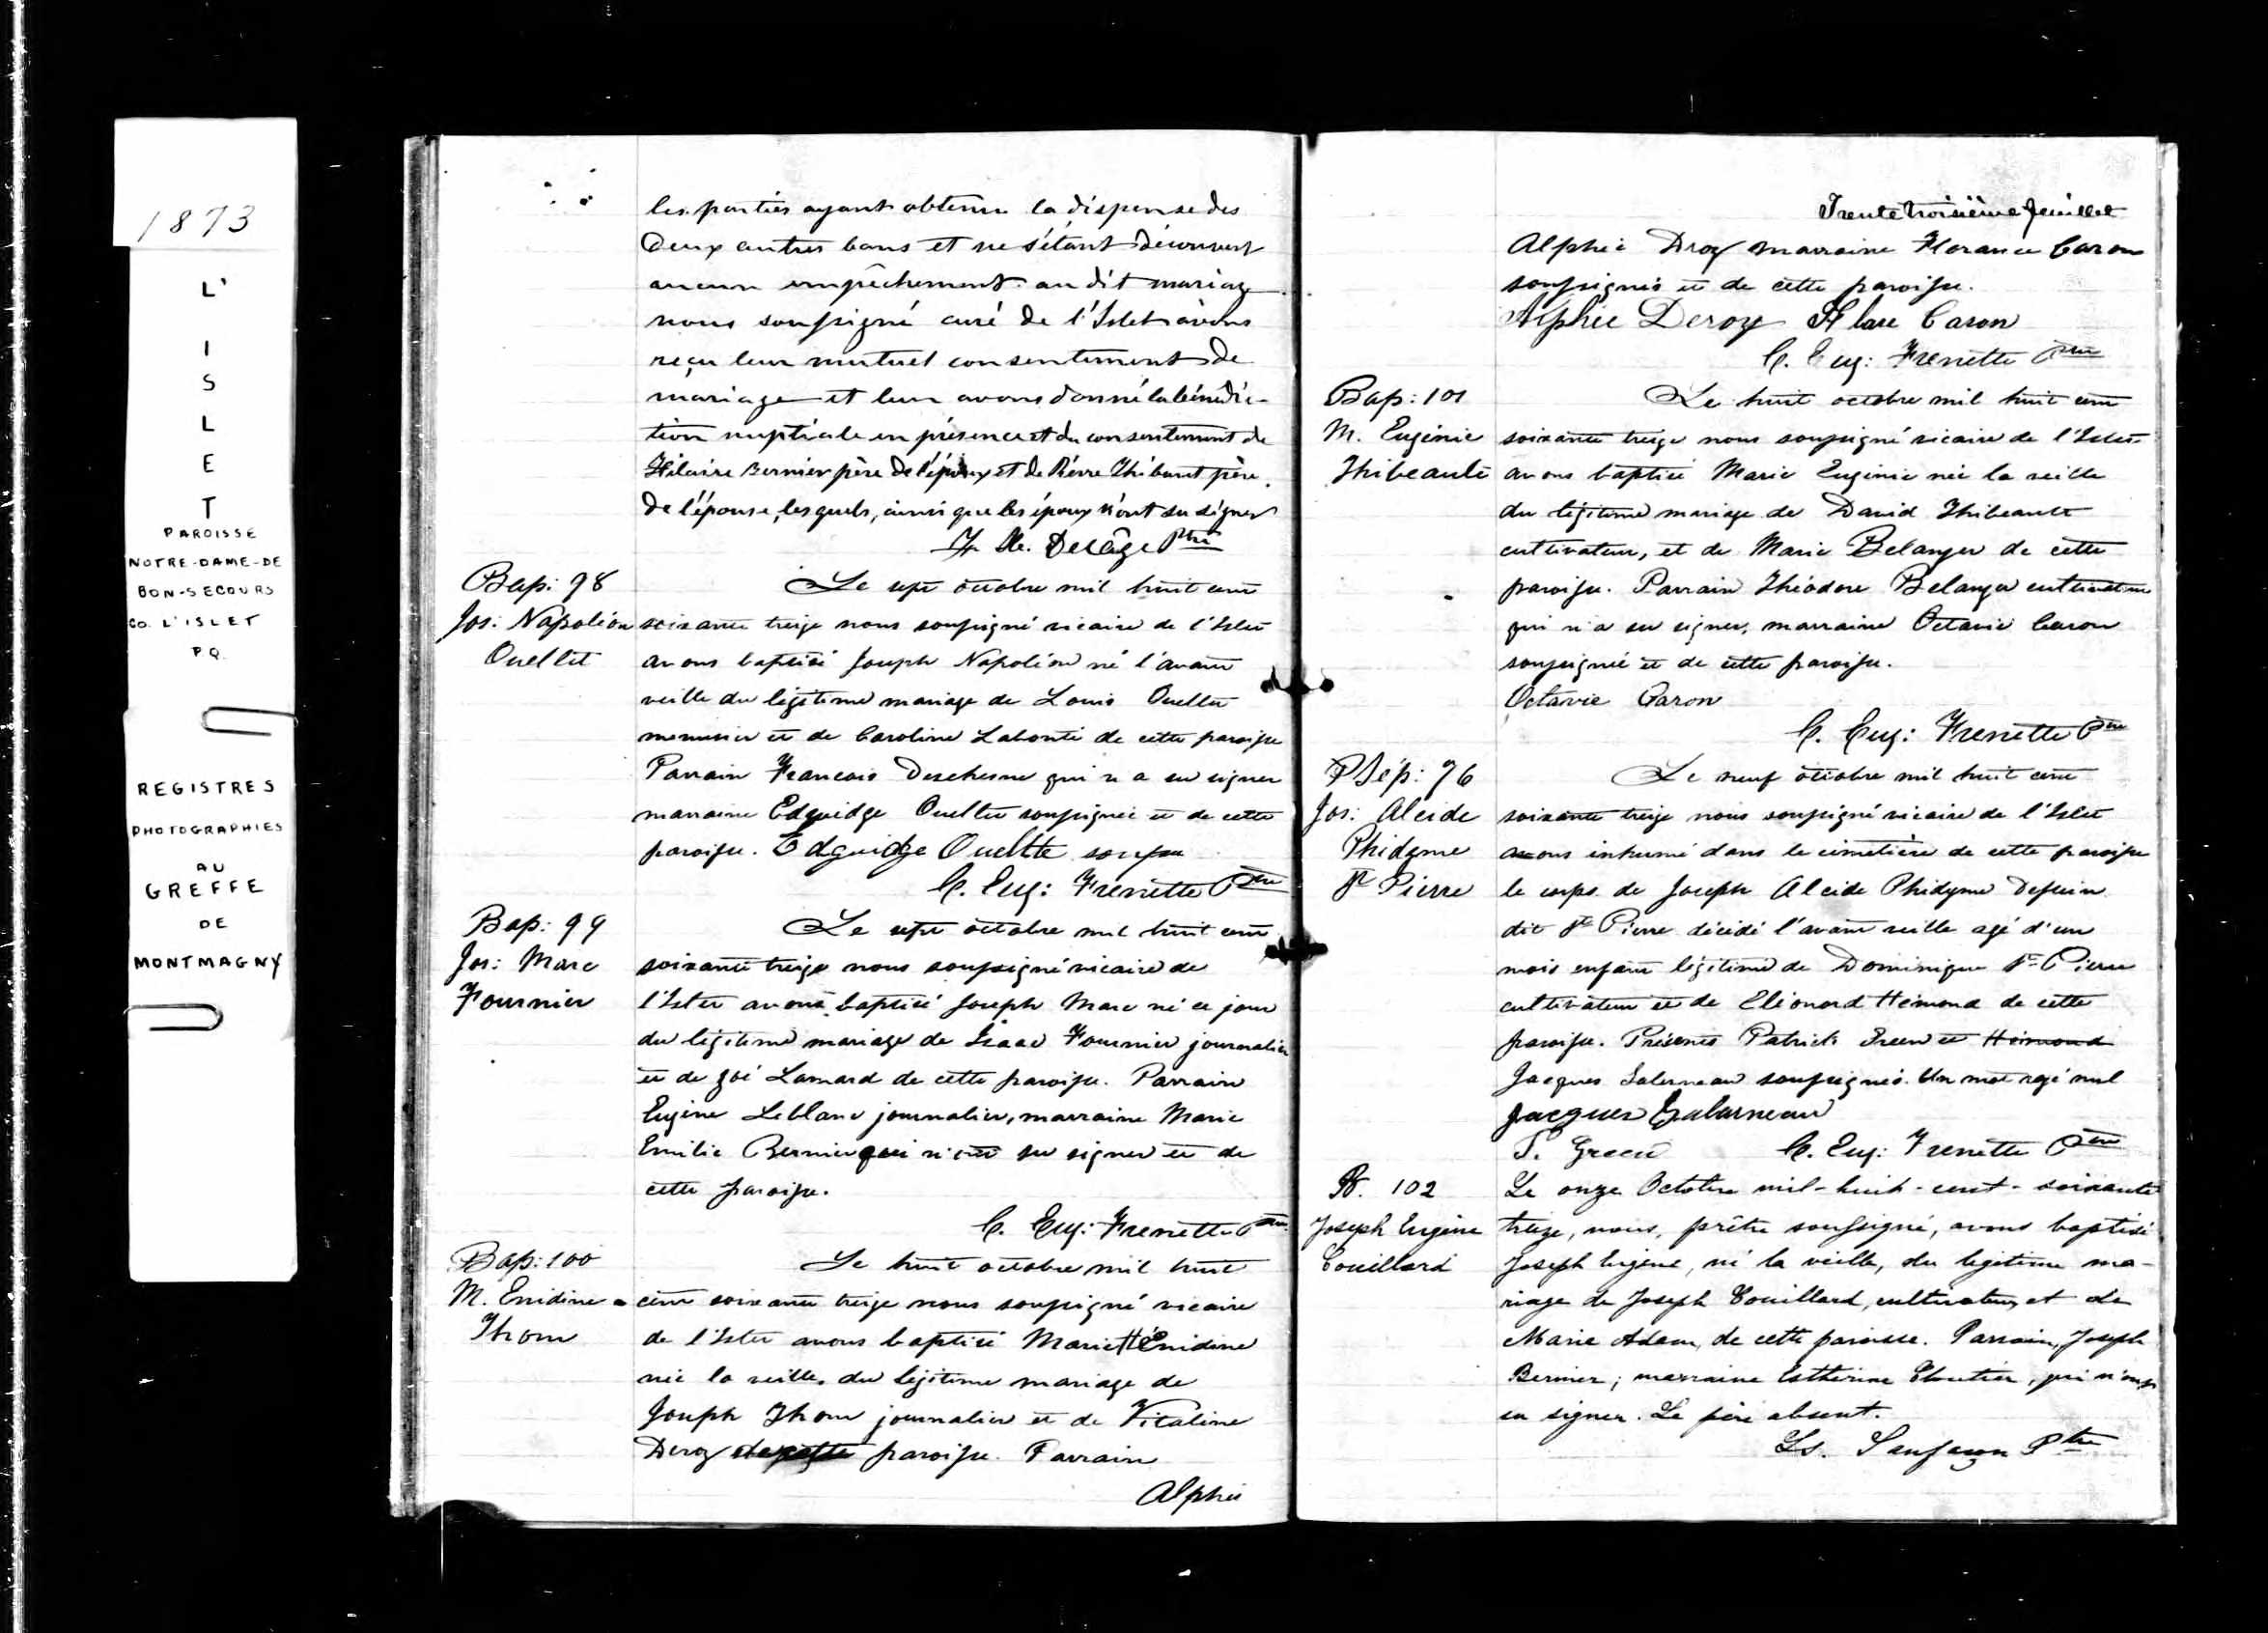 1873
L'
I
S
L
E
T
PAROISSE
NOTRE-DAME-DE
BON-SECOURS
CO. L'ISLET
P.Q.
REGISTRES
PHOTOGRAPHIES
AU
GREFFE
DE
MONTMAGNY
les parties ayant obtenu la dispense des
deux autres bans et ne s'étant découvert
aucun empêchement au dit mariage
nous soussigné curé de l'Islet avons
reçu leur mutuel consentement de
mariage et leur avons donné la bénédic-
tion nuptiale en présence et du consentement de
Hilaire Bernier père de l'époux et de Pierre Thibaut père
de l'épouse, lesquels, ainsi que les époux n'ont su signer
Delâge Ptre
Bap: 98
Jos: Napoléon
Ouellet
Le sept octobre mil huit cent
soixante treize nous soussigné vicaire de l'Islet
avons baptisé Joseph Napoléon né l'avant
veille du légitime mariage de Louis Ouellet
menuisier et de Caroline Labonté de cette paroisse
Parrain Francois Deschesne qui n a su signer
marraine Edguidge Ouellet soussignée et de cette
paroisse. Edguidge Ouellte
C. Eug: Frenette Ptre
Bap: 99
Jos: Marc
Fournier
Le sept octobre mil huit cent
soixante treize nous soussigné vicaire de
l'Islet avons baptisé Joseph Marc né ce jour
du légitime mariage de Isaac Fournier journalier
et de Zoé Lamard de cette paroisse. Parrain
Eugène Leblanc journalier, marraine Marie
Emilie Bernier qui n'ont su signer et de
cette paroisse.
C. Eug: Frenette Ptre
Bap: 100
M. Enidine
Thom
Le huit octobre mil huit
cent soixante treize nous soussigné vicaire
de l'Islet avons baptisé Marie Hénidine
née la veille du légitime mariage de
Joseph Thom journalier et de Vitaline
Deroy de cette paroisse. Parrain
Alphée
Trente troisième feuillet
Alphée Droy marraine Florance Caron
soussignés et de cette paroisse.
Alphée Deroy Flore Caron
C. Eug: Frenette Ptre
Bap: 101
M. Eugénie
Thibeault
Le huit octobre mil huit cent
soixante treize nous soussigné vicaire de l'Islet
avons baptisé Marie Eugénie née la veille
du légitime mariage de David Thibeault
cultivateur, et de Marie Belanger de cette
paroisse. Parrain Théodore Belanger cultivateur
qui n'a su signer, marraine Octavie Caron
soussignée et de cette paroisse.
Octavie Caron
C. Eug: Frenette Ptre
Sép: 76
Jos: Alcide
Phidyme
St Pierre
Le neuf octobre mil huit cent
soixante treize nous soussigné vicaire de l'Islet
avons inhumé dans le cimetière de cette paroisse
le corps de Joseph Alcide Phidyme Dessein
dit St Pierre décédé l'avant veille agé d'un
mois enfant légitime de Dominique St Pierre
cultivateur et de Eléonord Hémond de cette
paroisse. Présents Patrick Green et Hémond
Jacques Galerneau soussignés. Un mot rayé nul
Jacques Galarneau
P. Green C. Eug: Frenette Ptre
B. 102
Joseph Eugène
Couillard
Le onze Octobre mil-huit-cent-soixante
treize, nous, prêtre soussigné, avons baptisé
Joseph Eugène, né la veille, du légitime ma-
riage de Joseph Couillard, cultivateur, et de
Marie Adam, de cette paroisse. Parrain, Joseph
Bernier; marraine Catherine Cloutier, qui n'ont
su signer. Le père absent.
Ls. Sanfaçon Ptre